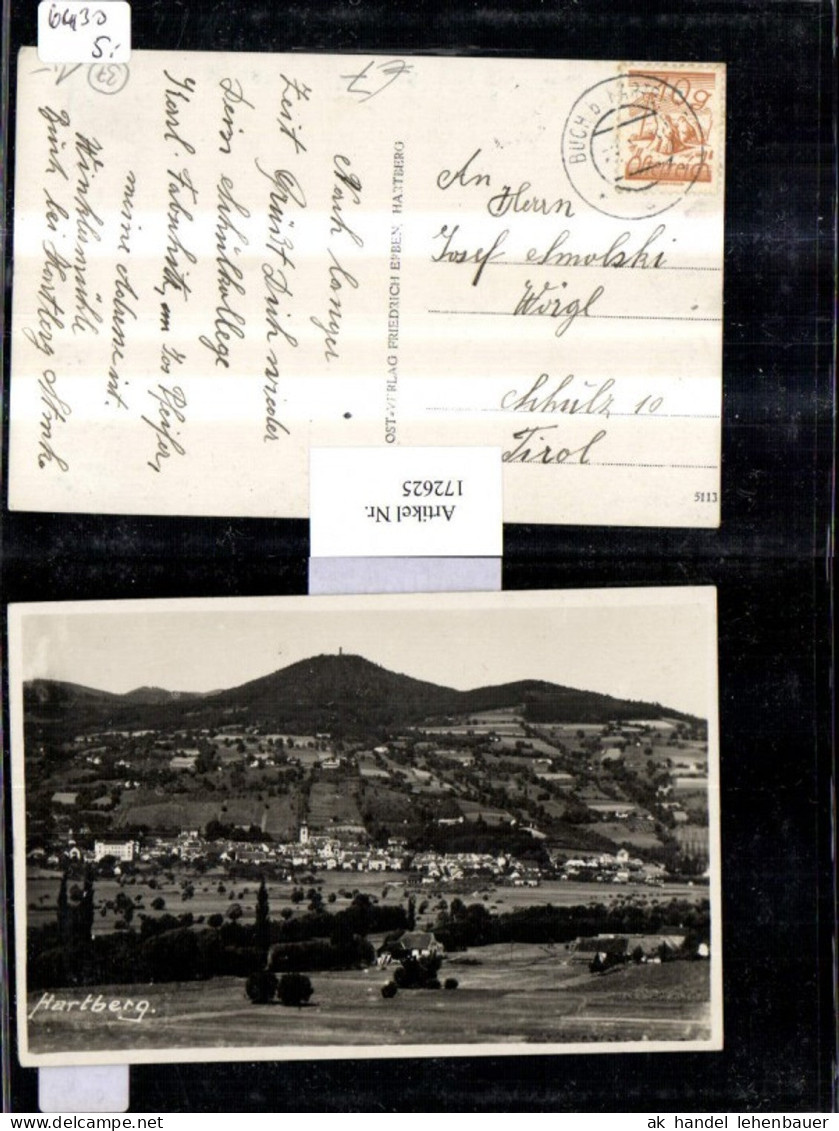 6433
S.
37
Nach langer
Zeit Grüßt Dich wieder
Dein Schulkollege
Karl
meine Adresse ist.
Winklmühle
Buch bei Hartberg
POST-VERLAG FRIEDRICH ERBEN, HARTBERG
BUCH b. HART
10g
Österreich
An
Herrn
Josef Smolski
Wörgl
Schulz 10
Tirol
5113
Artikel Nr.
172625
Hartberg.
ak handel lehenbauer